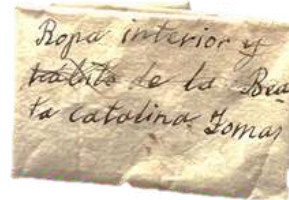 Ropa interior y
habito de la Bea
ta Catalina Tomas